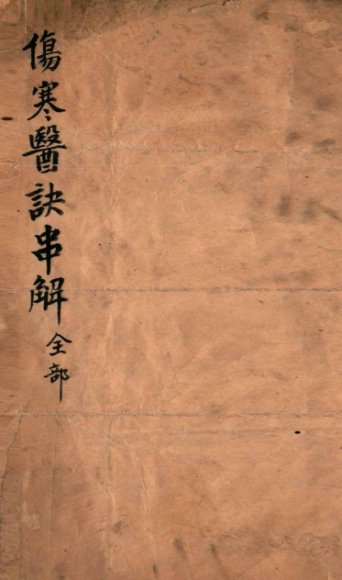 傷寒醫訣串解全部